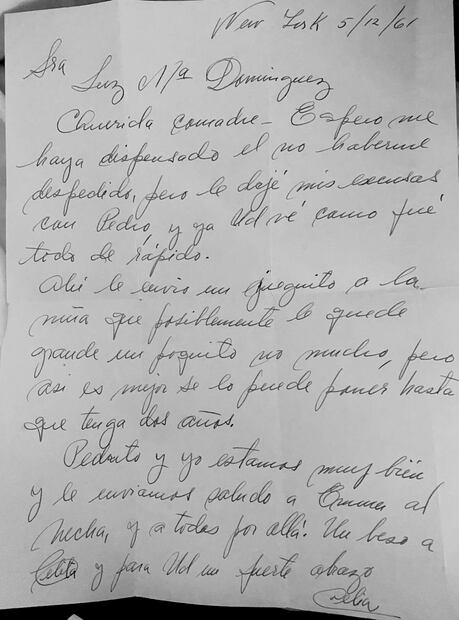 New York 5/12/61
Sra
Luz Mª Dominguez
Querida comadre - Espero me
haya dispensado el no haberme
despedido, pero le dejé mis excusas
con Pedro, y ya Ud vé como fué
todo de rápido.
Ahi le envio un jueguito a la
niña que posiblemente le quede
grande un poquito no mucho, pero
asi es mejor se lo puede poner hasta
que tenga dos años.
Pedrito y yo estamos muy bién
y le enviamos saludo a al
hecha, y a todos por allá. Un beso a
y para Ud un fuerte abazo
Celia